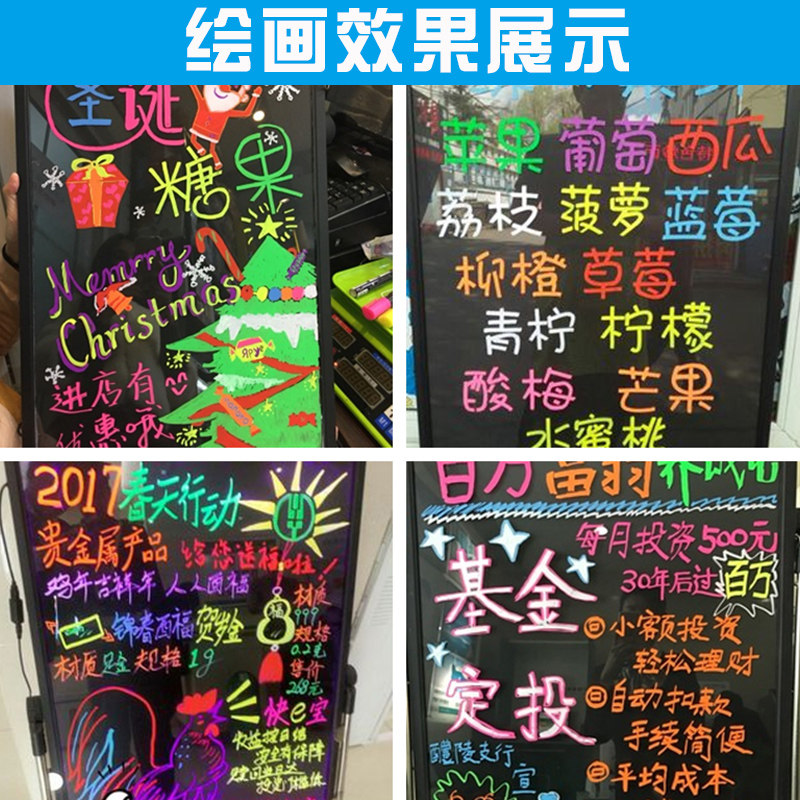 绘画效果展示
圣诞
糖果
Memrry
Christmas
ЯРУЖ
进店有
优惠哦
苹果 葡萄 西瓜
荔枝 菠萝 蓝莓
柳橙 草莓
青柠 柠檬
酸梅 芒果
水蜜桃
2017春天行动
贵金属产品 给您送福啦!
鸡年吉祥年 人人面福
福
锦春酉福 贺岁金
材质足金规格1g
材质
999
规格
0.2克
售价
268元
快e宝
收益按日结
安全有保障
百万富翁养成记
每月投资500元
30年后过百万
基金
定投
小额投资
轻松理财
自动扣款
手续简便
平均成本
醴陵支行
宣